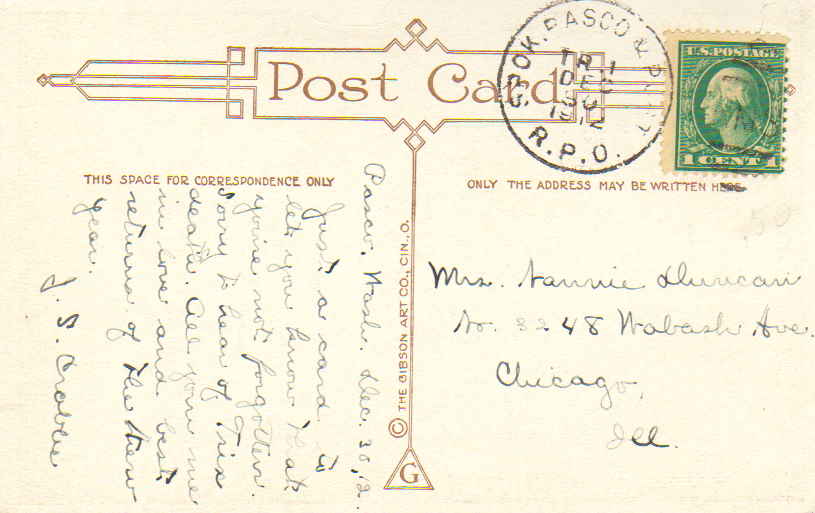 Post Card
SPOK. PASCO & PORT.
TR 1
DEC
30
1912
R.P.O.
U.S. POSTAGE
1 CENT 1
THIS SPACE FOR CORRESPONDENCE ONLY
ONLY THE ADDRESS MAY BE WRITTEN HERE
Pasco, Wash. Dec. 30, 12.
Just a card to
let you know that
youre not forgotten.
Sorry to hear of Trix
death. All join me
in love and best
returns of the New
Year.
J. S.
© THE GIBSON ART CO., CIN., O.
G
Mrs. Nannie Duncan
No. 3248 Wabash Ave.
Chicago,
Ill.
.50